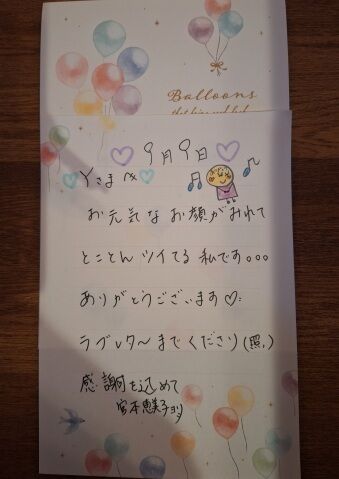 Balloons
9月9日
Yさまへ
お元気なお顔がみれて
とことんツイてる私です。。。
ありがとうございます♡
ラブレターまでくださり(照。)
感謝を込めて
宮本恵美子より